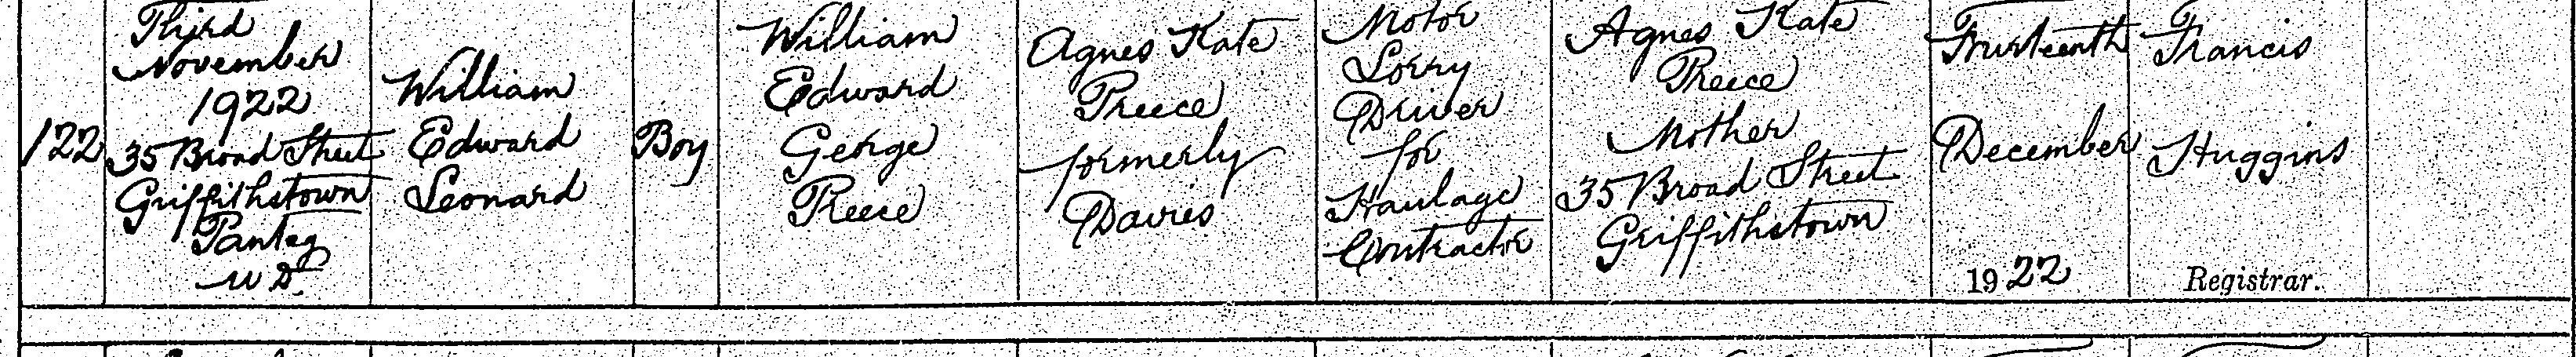 122
Third
November
1922
35 Broad Street
Griffithstown
Panteg
U D.
William
Edward
Leonard
Boy
William
Edward
George
Preece
Agnes Kate
Preece
formerly
Davies
Motor
Lorry
Driver
for
Haulage
Contractor
Agnes Kate
Preece
Mother
35 Broad Street
Griffithstown
December
1922
Francis
Huggins
Registrar.